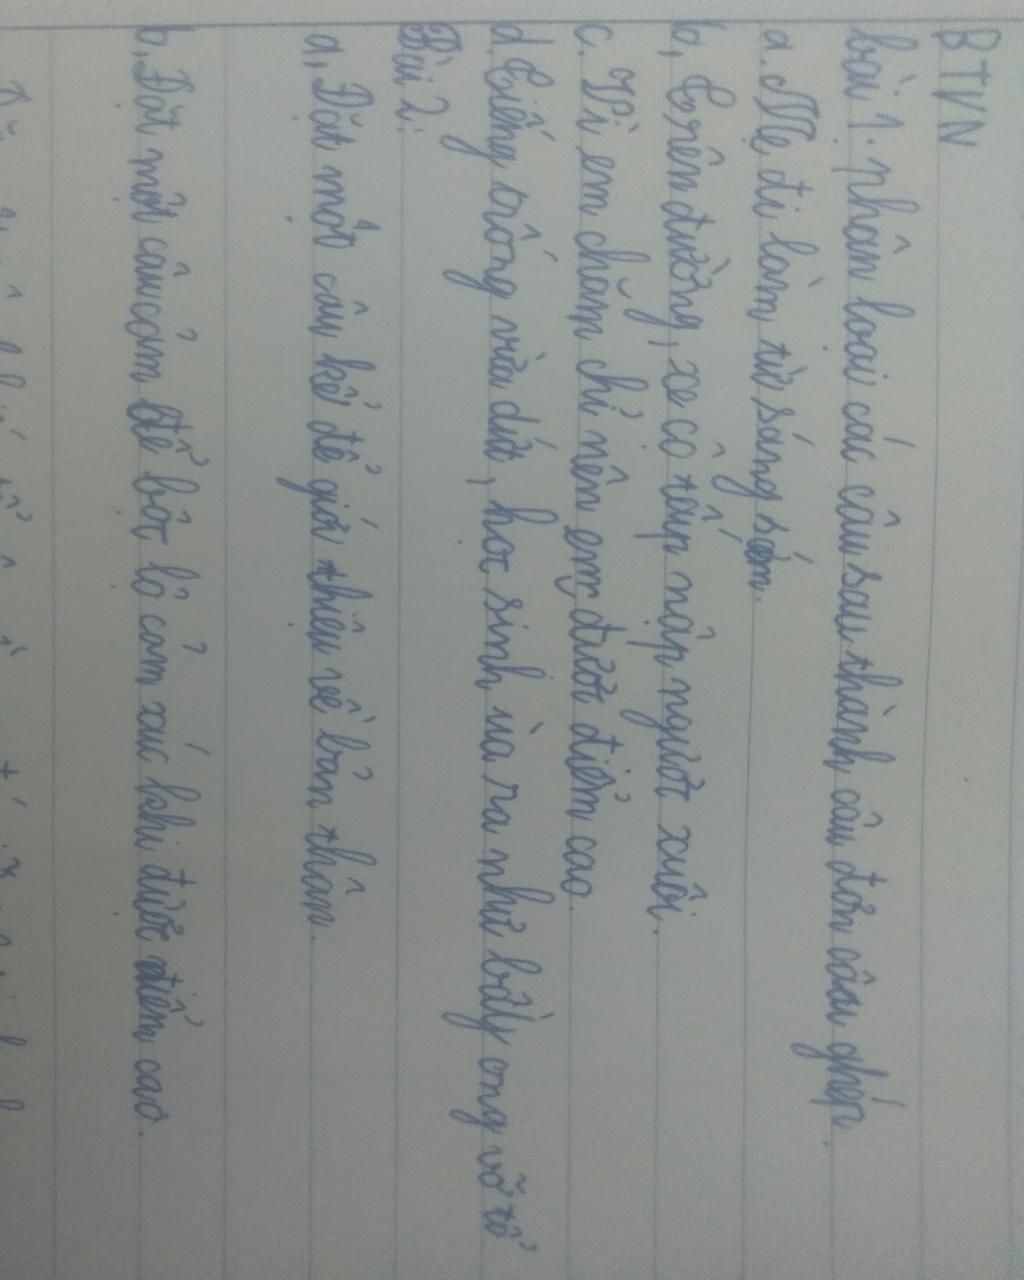 BTVN
bài 1. phân loại các câu sau thành câu đơn câu ghép.
a. Mẹ đi làm từ sáng sớm.
b, Trên đường, xe cộ tấp nập ngượt xuôi.
c. Vì em chăm chỉ nên em được điểm cao.
d. Tiếng trống vừa dứt, học sinh ùa ra như bầy ong vỡ tổ
Bài 2:
a, Đặt một câu kể để giới thiệu về bản thân.
b, Đặt một câu cảm để bột lộ cảm xúc khi được điểm cao.